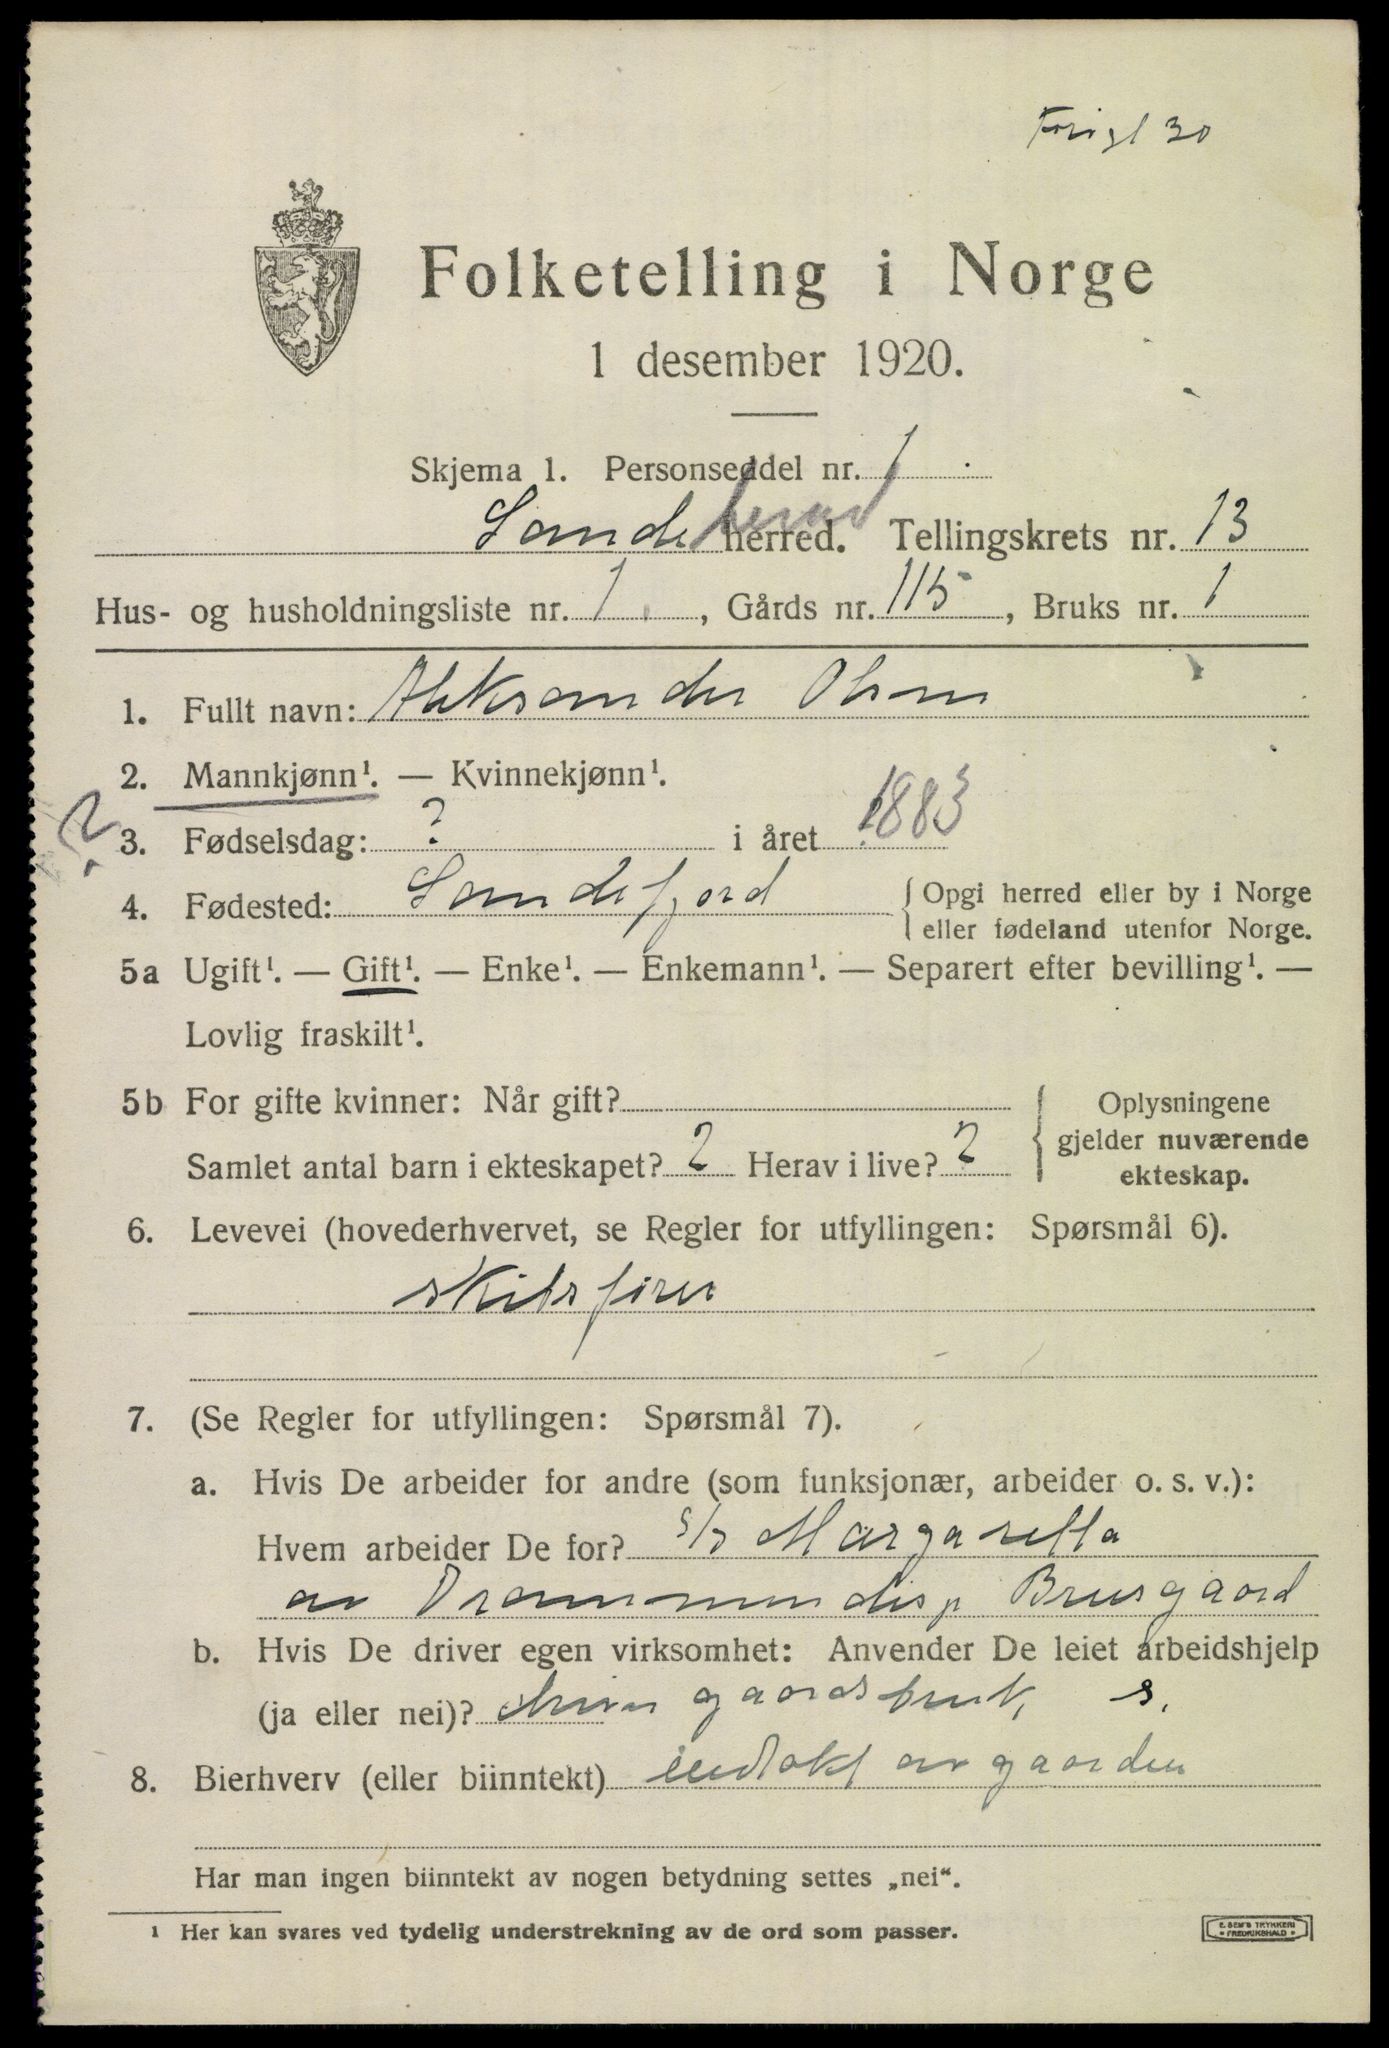 Folketelling i Norge
1 desember 1920.
Skjema 1. Personseddel nr. 1
Sandeherred herred. Tellingskrets nr. 13
Hus- og husholdningsliste nr. 1, Gårds nr. 115, Bruks nr. 1
1. Fullt navn: Aleksander Olsen
2. Mannkjønn¹. — Kvinnekjønn¹.
? 3. Fødselsdag: ? i året 1883
4. Fødested: Sandefjord { Opgi herred eller by i Norge
eller fødeland utenfor Norge.
5a Ugift¹. — Gift¹. — Enke¹. — Enkemann¹. — Separert efter bevilling¹. —
Lovlig fraskilt¹.
5b For gifte kvinner: Når gift?
Samlet antal barn i ekteskapet? 2 Herav i live? 2
{ Oplysningene
gjelder nuværende
ekteskap.
6. Levevei (hovederhvervet, se Regler for utfyllingen: Spørsmål 6).
skibsfører
7. (Se Regler for utfyllingen: Spørsmål 7).
a. Hvis De arbeider for andre (som funksjonær, arbeider o. s. v.):
Hvem arbeider De for? s/s Margaretta
av Drammen disp Bruusgaard
b. Hvis De driver egen virksomhet: Anvender De leiet arbeidshjelp
(ja eller nei)? driver gaardsbruk, s.
8. Bierhverv (eller biinntekt) indtekt av gaarden
Har man ingen biinntekt av nogen betydning settes „nei“.
¹ Her kan svares ved tydelig understrekning av de ord som passer.
E. SEM'S TRYKKERI
* FREDRIKSHALD *